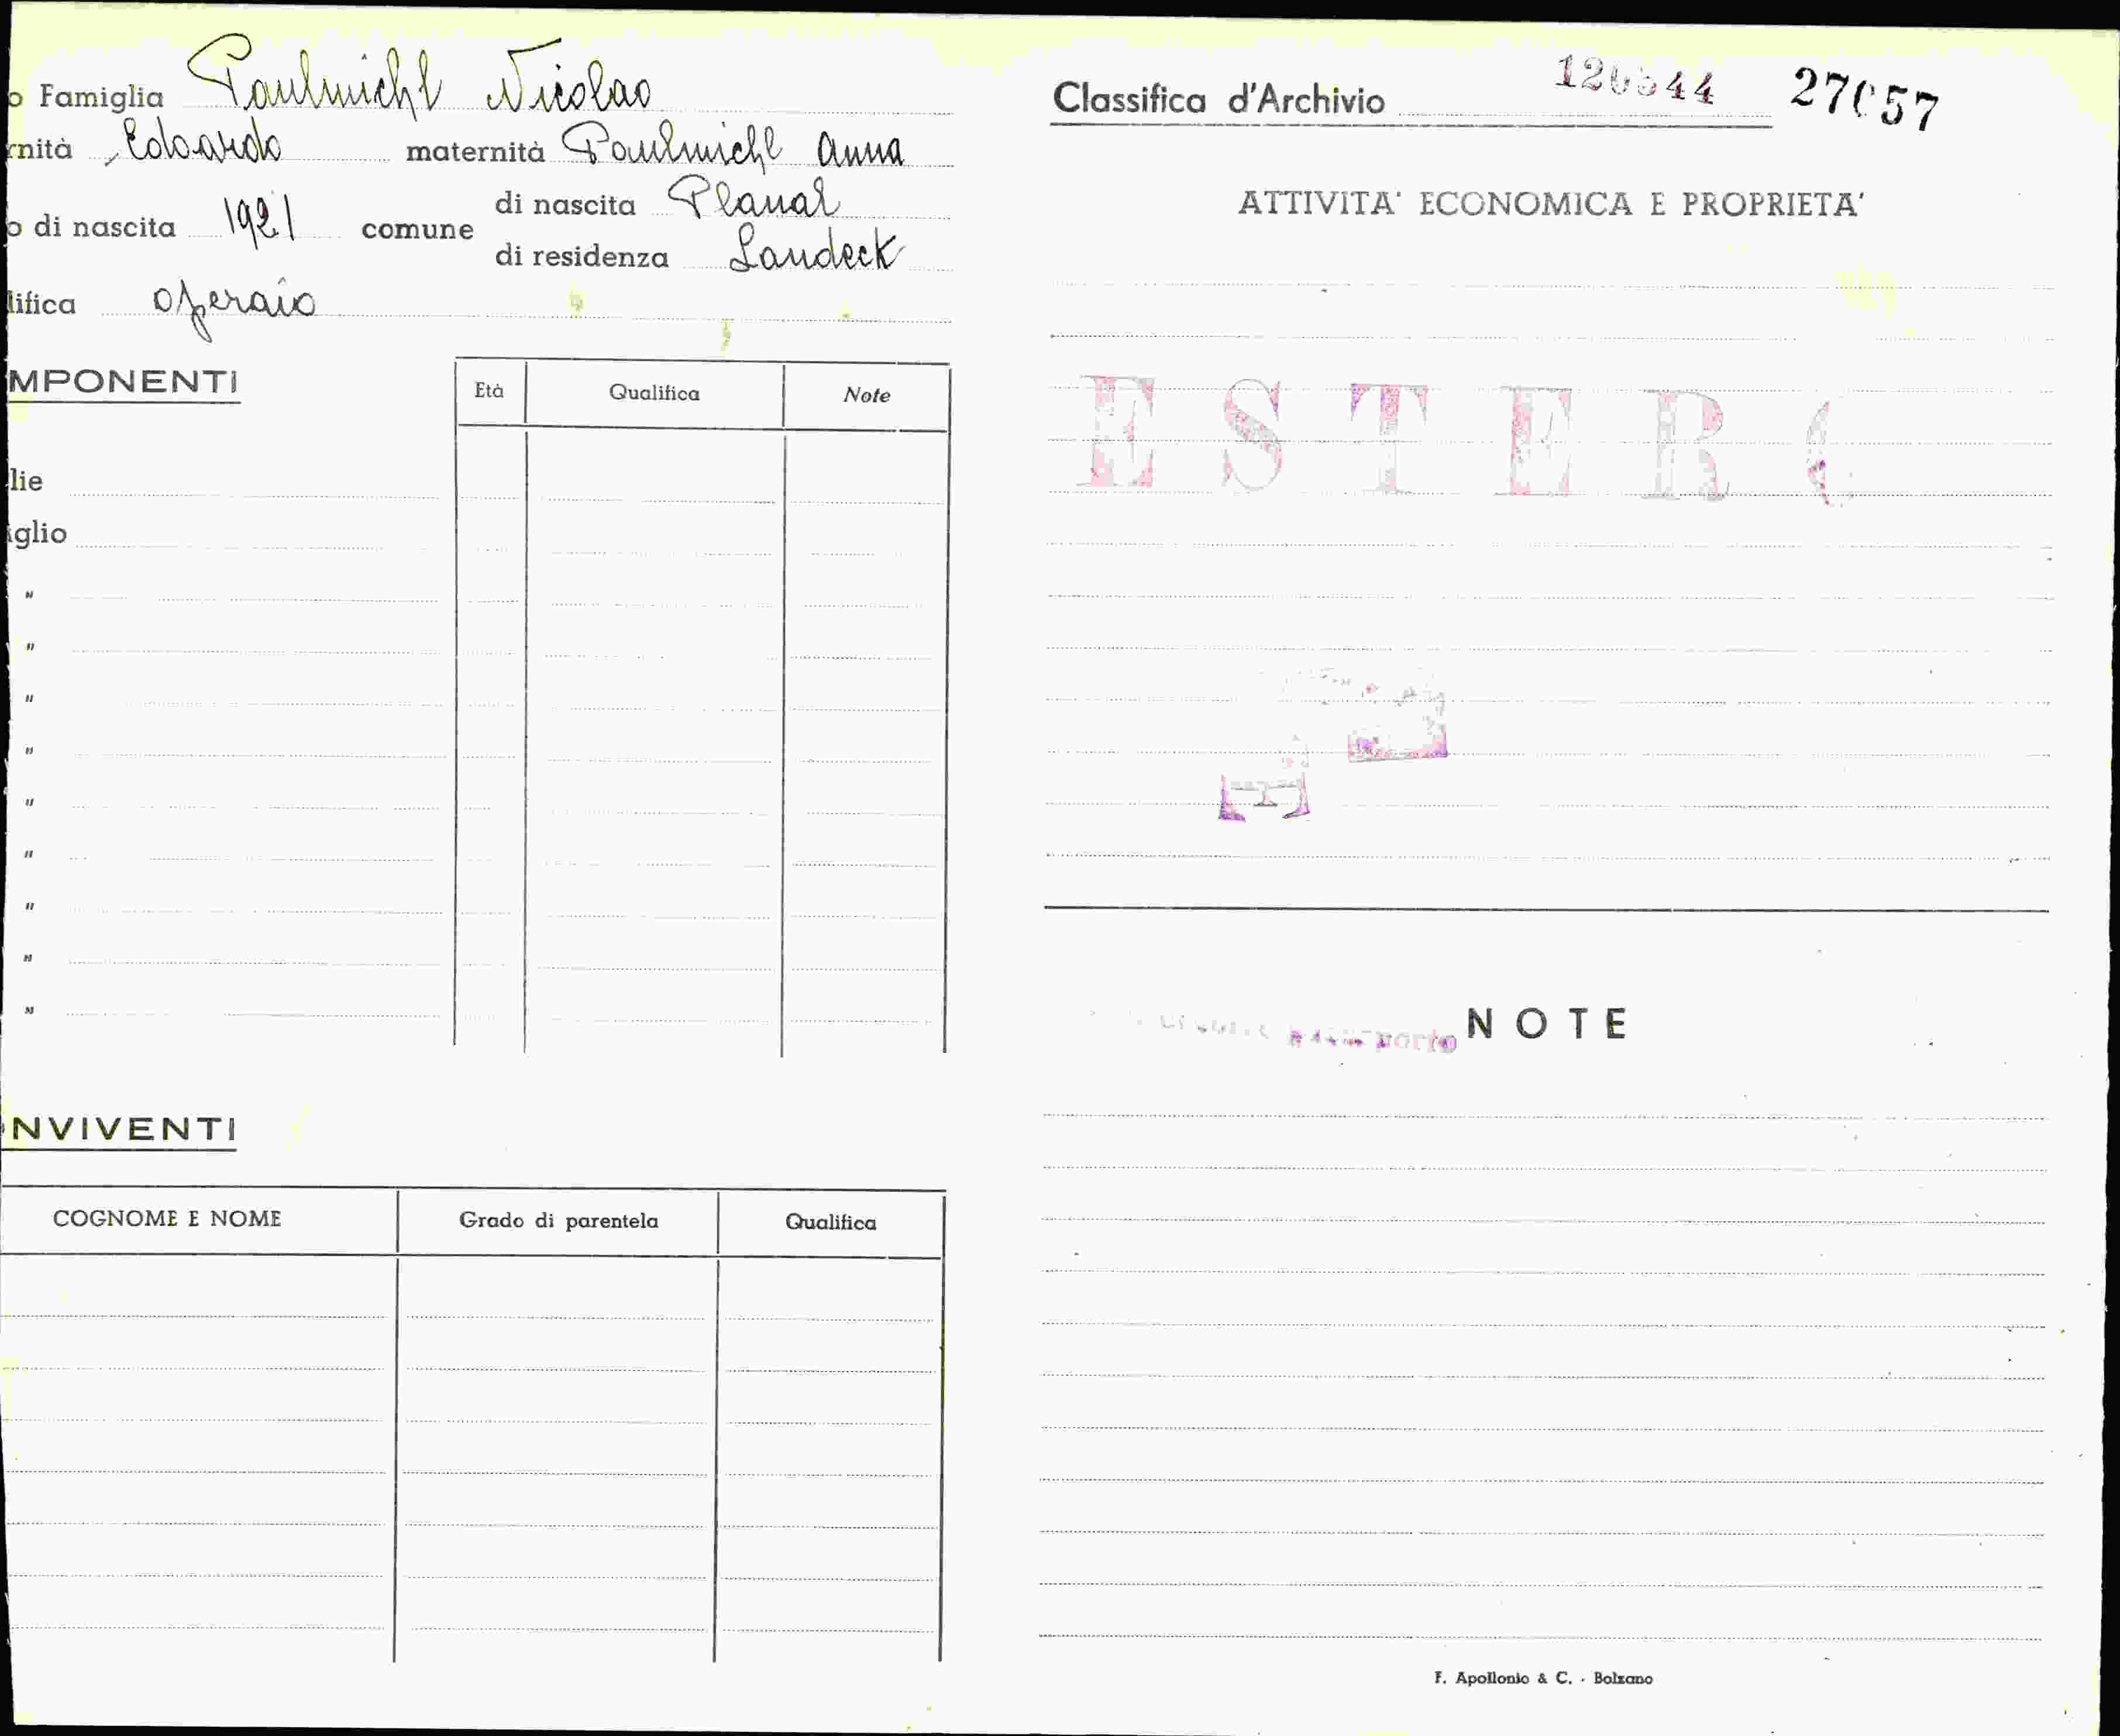 o Famiglia Paulmichl Nicolao
rnità Edoardo maternità Paulmichl Anna
o di nascita 1921 comune di nascita Planal
di residenza Landeck
lifica operaio
MPONENTI
Età Qualifica Note
lie
iglio
"
"
"
"
"
"
"
"
"
NVIVENTI
COGNOME E NOME Grado di parentela Qualifica
Classifica d'Archivio 27057
ATTIVITA' ECONOMICA E PROPRIETA'
ESTERO
NOTE
F. Apollonio & C. - Bolzano